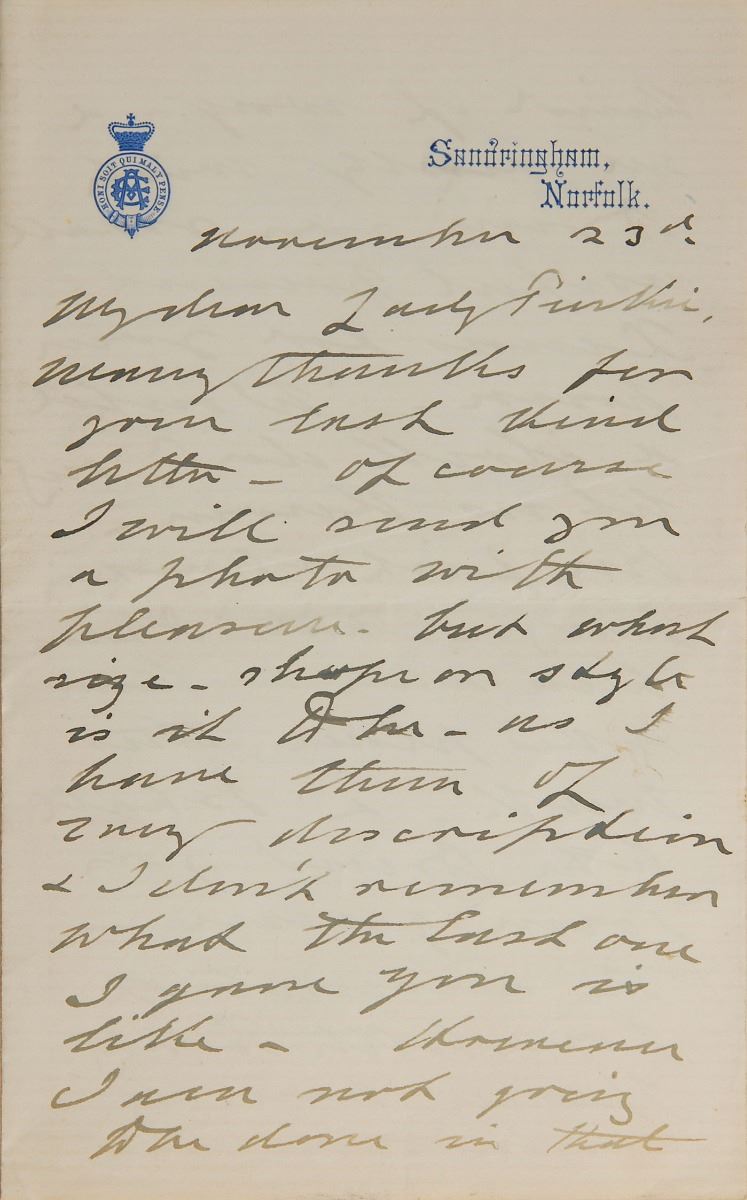 HONI SOIT QUI MAL Y PENSE
Sandringham,
Norfolk.
November 23rd
My dear Lady
many thanks for
your last kind
letter – Of course
I will send you
a photo with
pleasure – but what
size – shape or style
is it to be – as I
have them of
every description
& I don't remember
what the last one
I gave you is
like – However
I am not going
to be done in that